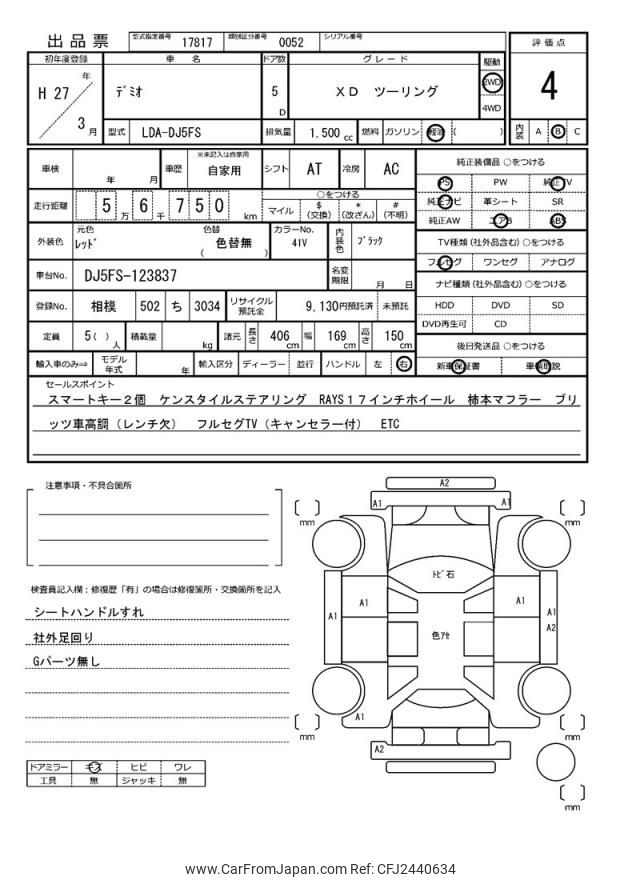 出品票 型式指定番号 17817 類別区分番号 0052 シリアル番号
評価点
4
内装 A B C
初年度登録 車名 ドア数 グレード 駆動
H 27 年 3 月 ﾃﾞﾐｵ 5 D XD ツーリング 2WD 4WD
型式 LDA-DJ5FS 排気量 1,500 cc 燃料 ガソリン 軽油 ( )
車検 年 月 車歴 ※未記入は自家用 自家用 シフト AT 冷房 AC
走行距離 5 万 6 千 7 5 0 km ○をつける
マイル $(交換) *(改ざん) #(不明)
外装色 元色 レッド 色替 色替無 ( ) カラーNo. 41V 内装色 ブラック
車台No. DJ5FS-123837 名変期限 月 日
登録No. 相模 502 ち 3034 リサイクル預託金 9,130円預託済 未預託
定員 5( )人 積載量 kg 諸元 長さ 406 cm 幅 169 cm 高さ 150 cm
輸入車のみ⇒ モデル年式 年 輸入区分 ディーラー 並行 ハンドル 左 右
純正装備品 ○をつける
PS PW 純正TV
純正ナビ 革シート SR
純正AW エアB ABS
TV種類(社外品含む)○をつける
フルセグ ワンセグ アナログ
ナビ種類(社外品含む)○をつける
HDD DVD SD
DVD再生可 CD
後日発送品 ○をつける
新車保証書 車輌取説
セールスポイント
スマートキー2個 ケンスタイルステアリング RAYS17インチホイール 柿本マフラー ブリ
ッツ車高調(レンチ欠) フルセグTV(キャンセラー付) ETC
注意事項・不具合箇所
検査員記入欄:修復歴「有」の場合は修復箇所・交換箇所を記入
シートハンドルすれ
社外足回り
Gパーツ無し
ドアミラー キズ ヒビ ワレ
工具 無 ジャッキ 無
A2
A1 A1
[ ] mm [ ] mm
ﾄﾋﾞ石
A1 A1 A1 A1
A2
色ｱｾ
A1
[ ] mm [ ] mm
A2
[ ] mm
www.CarFromJapan.com Ref: CFJ2440634